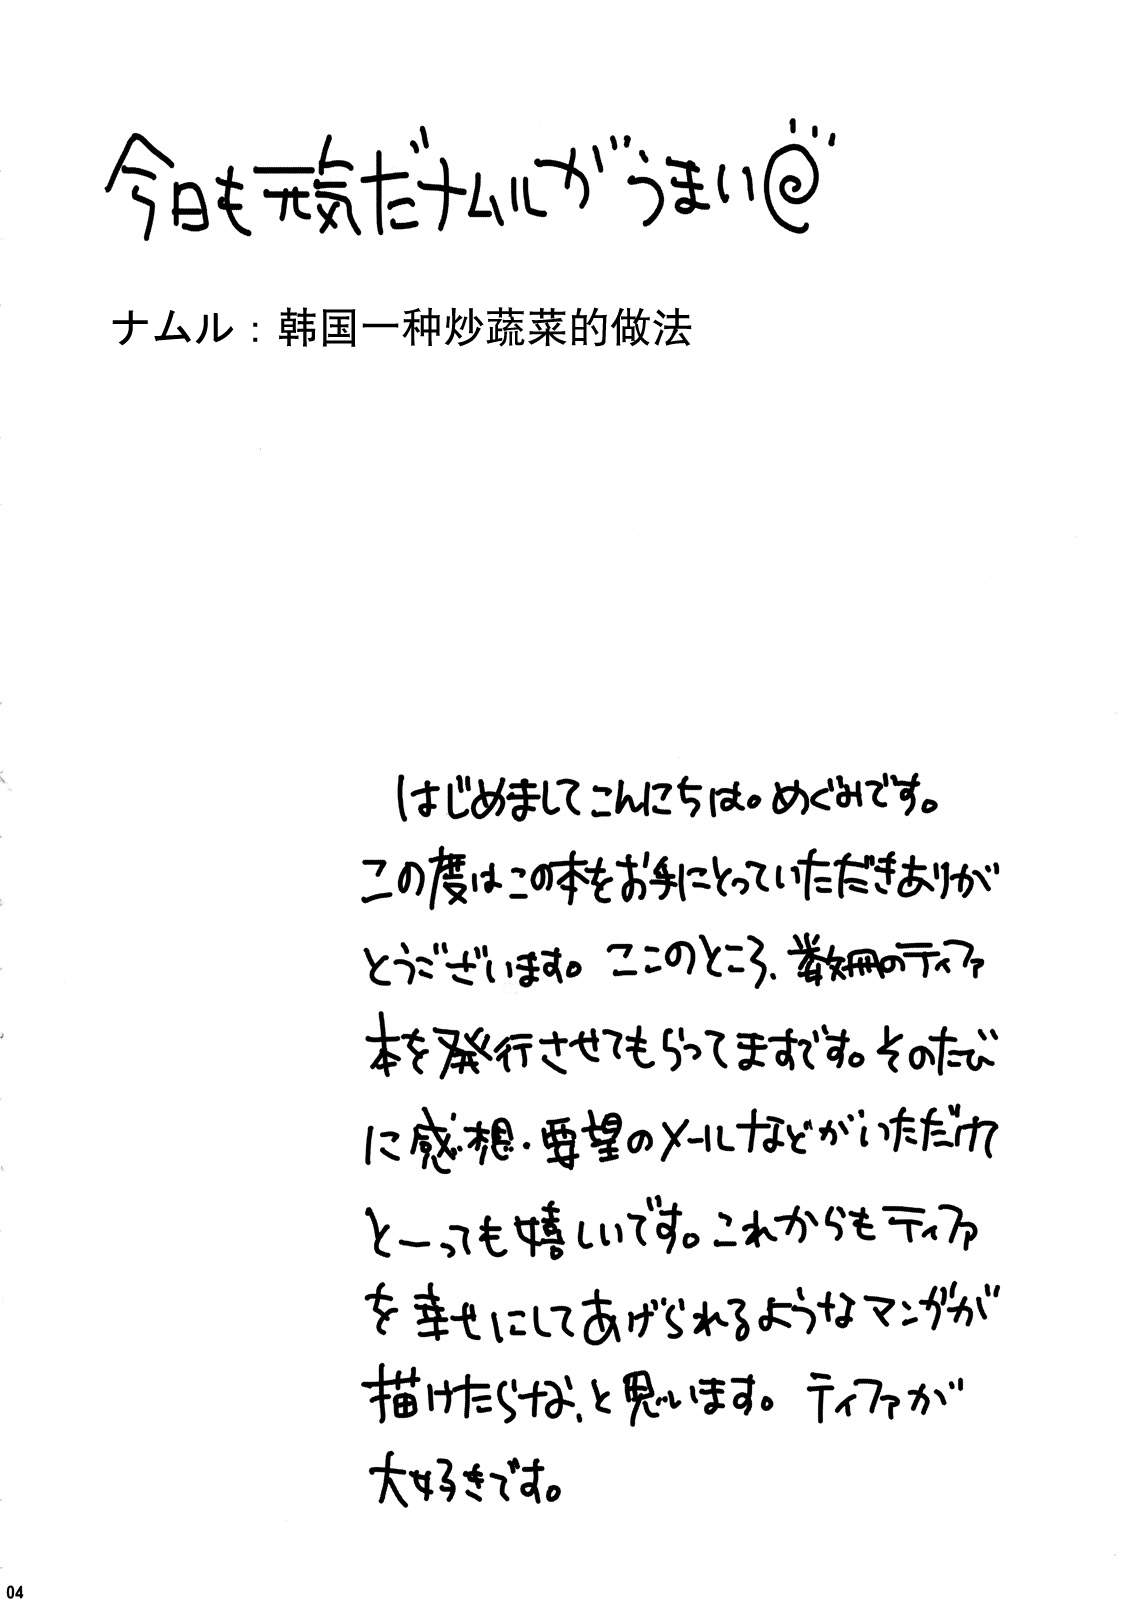 今日も元気だナムルがうまい@
ナムル：韩国一种炒蔬菜的做法
はじめましてこんにちは。めぐみです。
この度はこの本をお手にとっていただきありが
とうございます。ここのところ、数冊のティファ
本を発行させてもらってますです。そのたび
に感想・要望のメールなどがいただけて
とーっても嬉しいです。これからもティファ
を幸せにしてあげられるようなマンガが
描けたらなぁ、と思います。ティファが
大好きです。
04